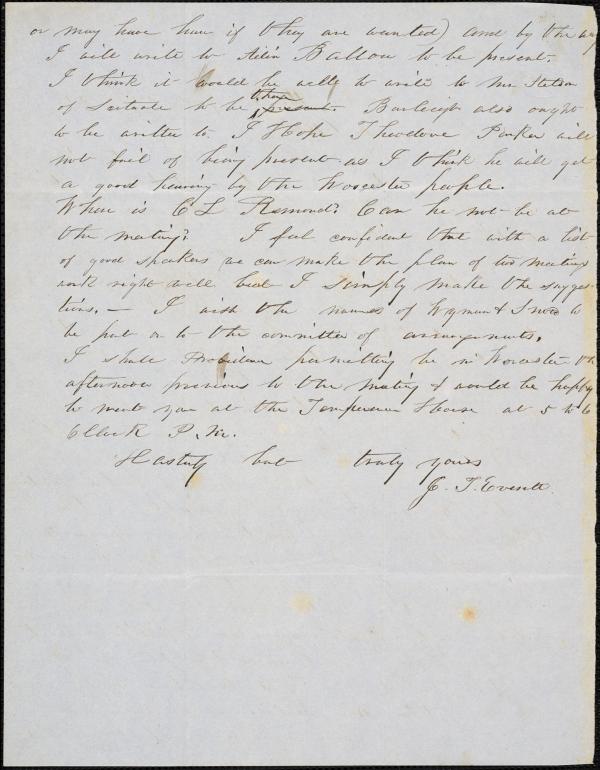 or may have have if they are wanted) and by the way
I will write to Adin Ballou to be present.
I think it would be well to write to Mr Stetson
of Scituate to be there present. Burleigh also ought
to be written to I Hope Theodore Parker will
not fail of being present as I think he will get
a good hearing by the Worcester people.
Where is C L Remond? Can he not be at
the meeting? I feel confident that with a list
of good speakers we can make the plan of two meetings
work right well but I simply make the sugges-
tions. — I wish the names of Wyman & Snow to
be put on to the committee of arrangements.
I shall Providence permitting be in Worcester the
afternoon previous to the meeting & would be happy
to meet you at the Temperance House at 5 to 6
Clock P.M.
Hastily but truly yours
J. T. Everett.